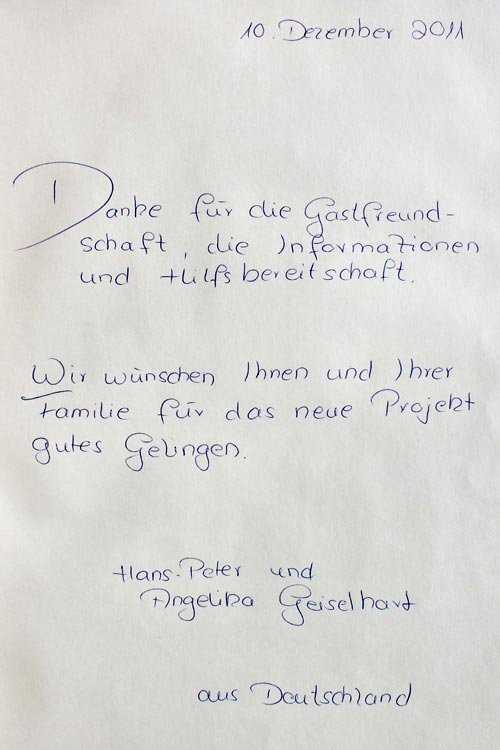 10. Dezember 2011
Danke für die Gastfreund-
schaft, die Informationen
und Hilfsbereitschaft.
Wir wünschen Ihnen und Ihrer
Familie für das neue Projekt
gutes Gelingen.
Hans-Peter und
Angelika Geiselhart
aus Deutschland